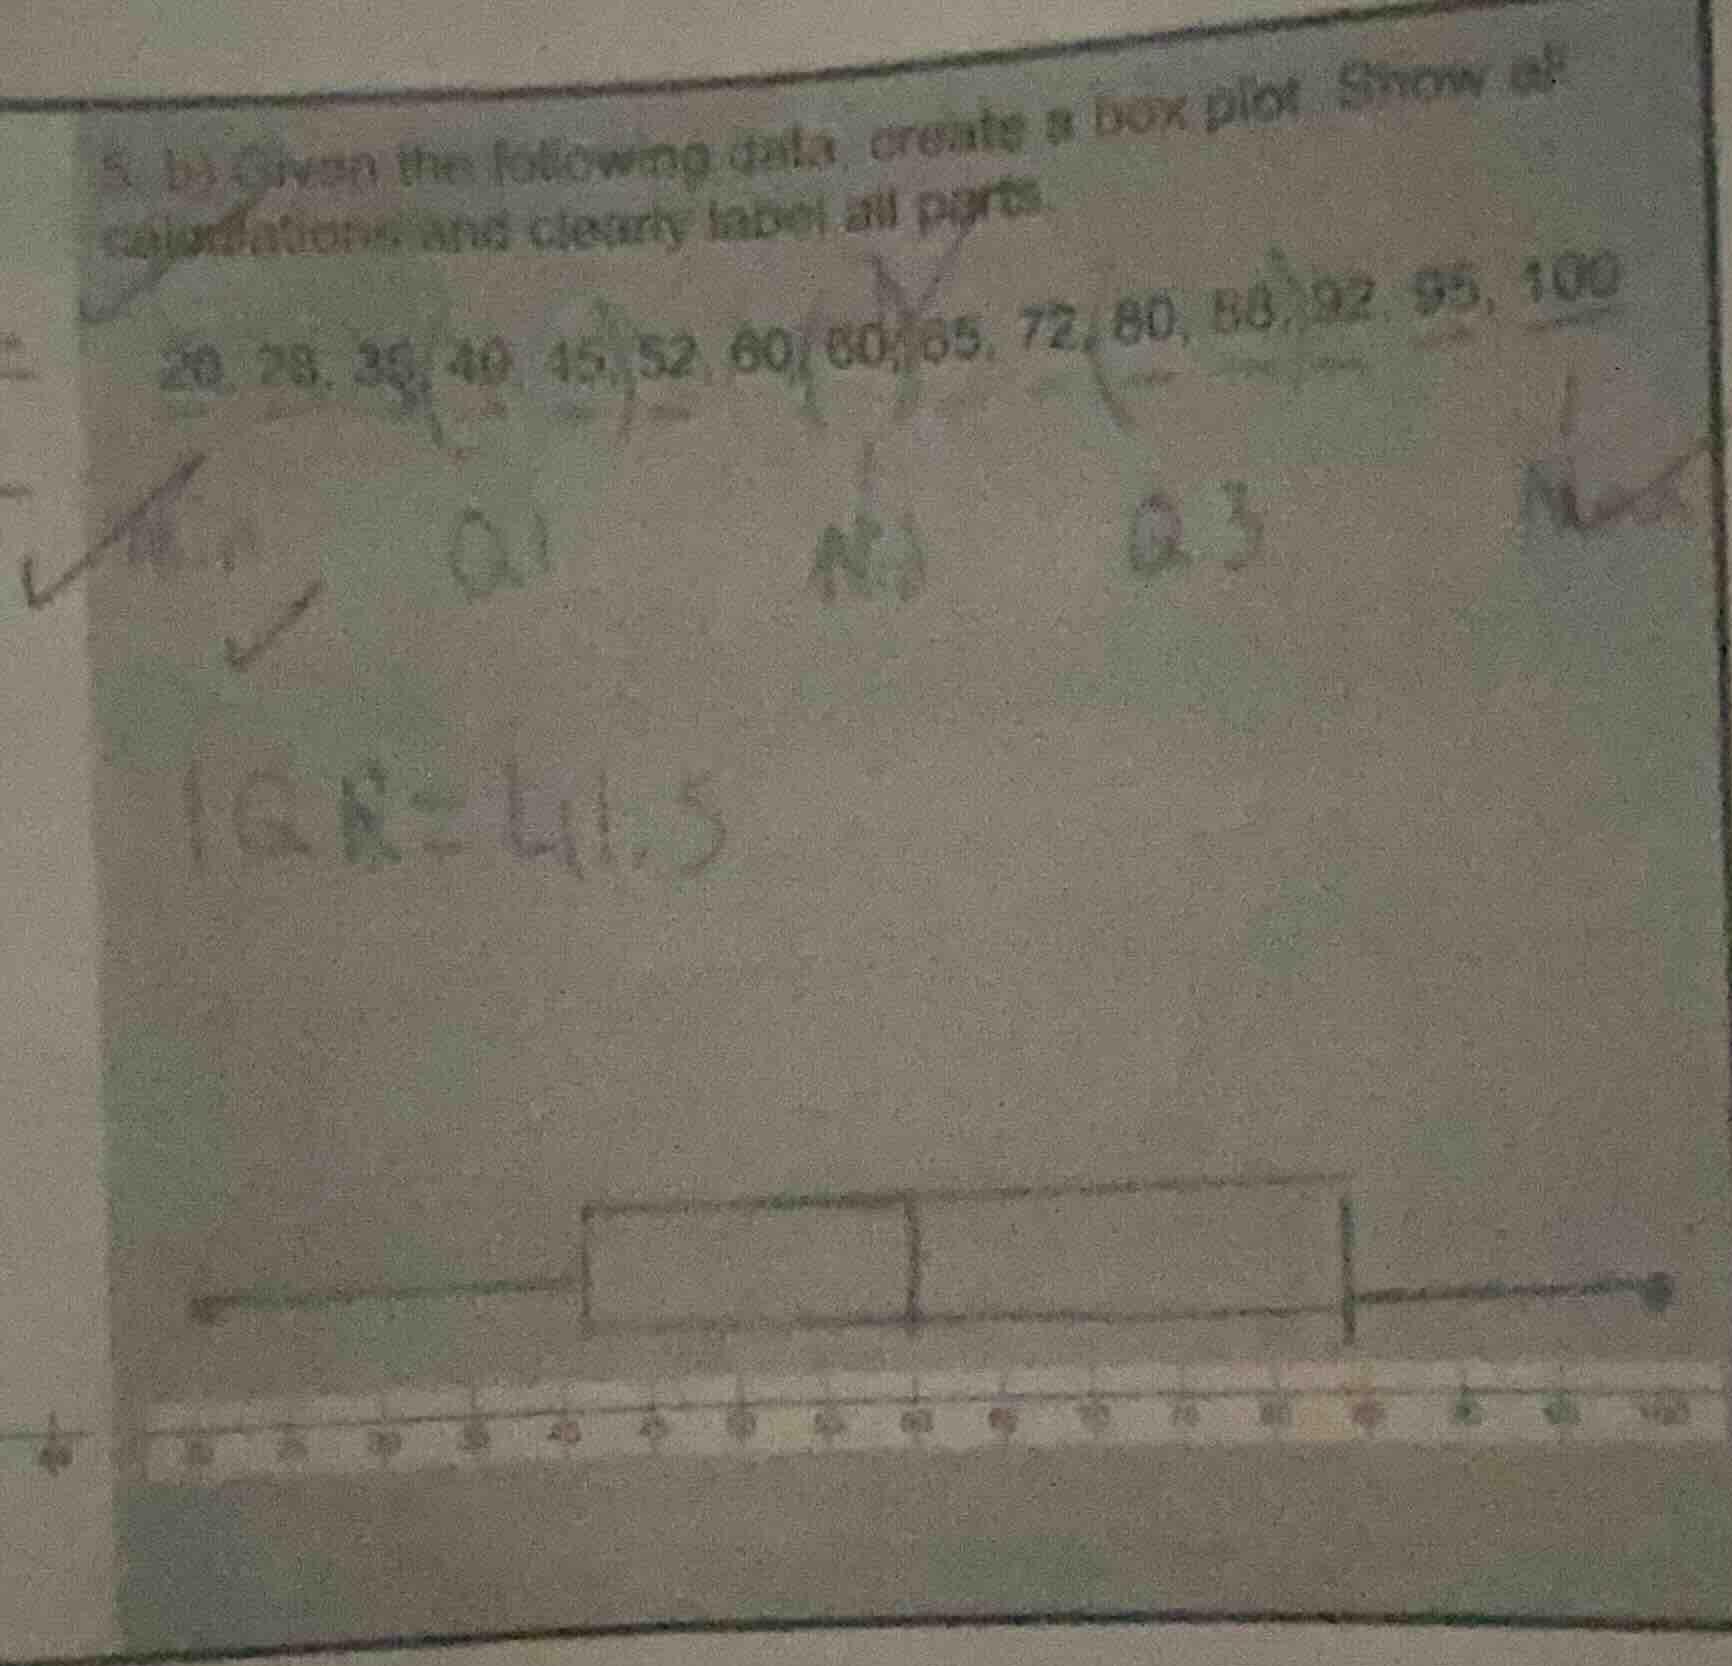 5. b) Given the following data, create a box plot. Show all
calculations and clearly label all parts.
20, 28, 35, 40, 45, 52, 60, 60, 65, 72, 80, 88, 92, 95, 100
Min Q1 Q3 Max
IQR = 41.5
20 25 30 35 40 45 50 55 60 65 70 75 80 85 90 95 100